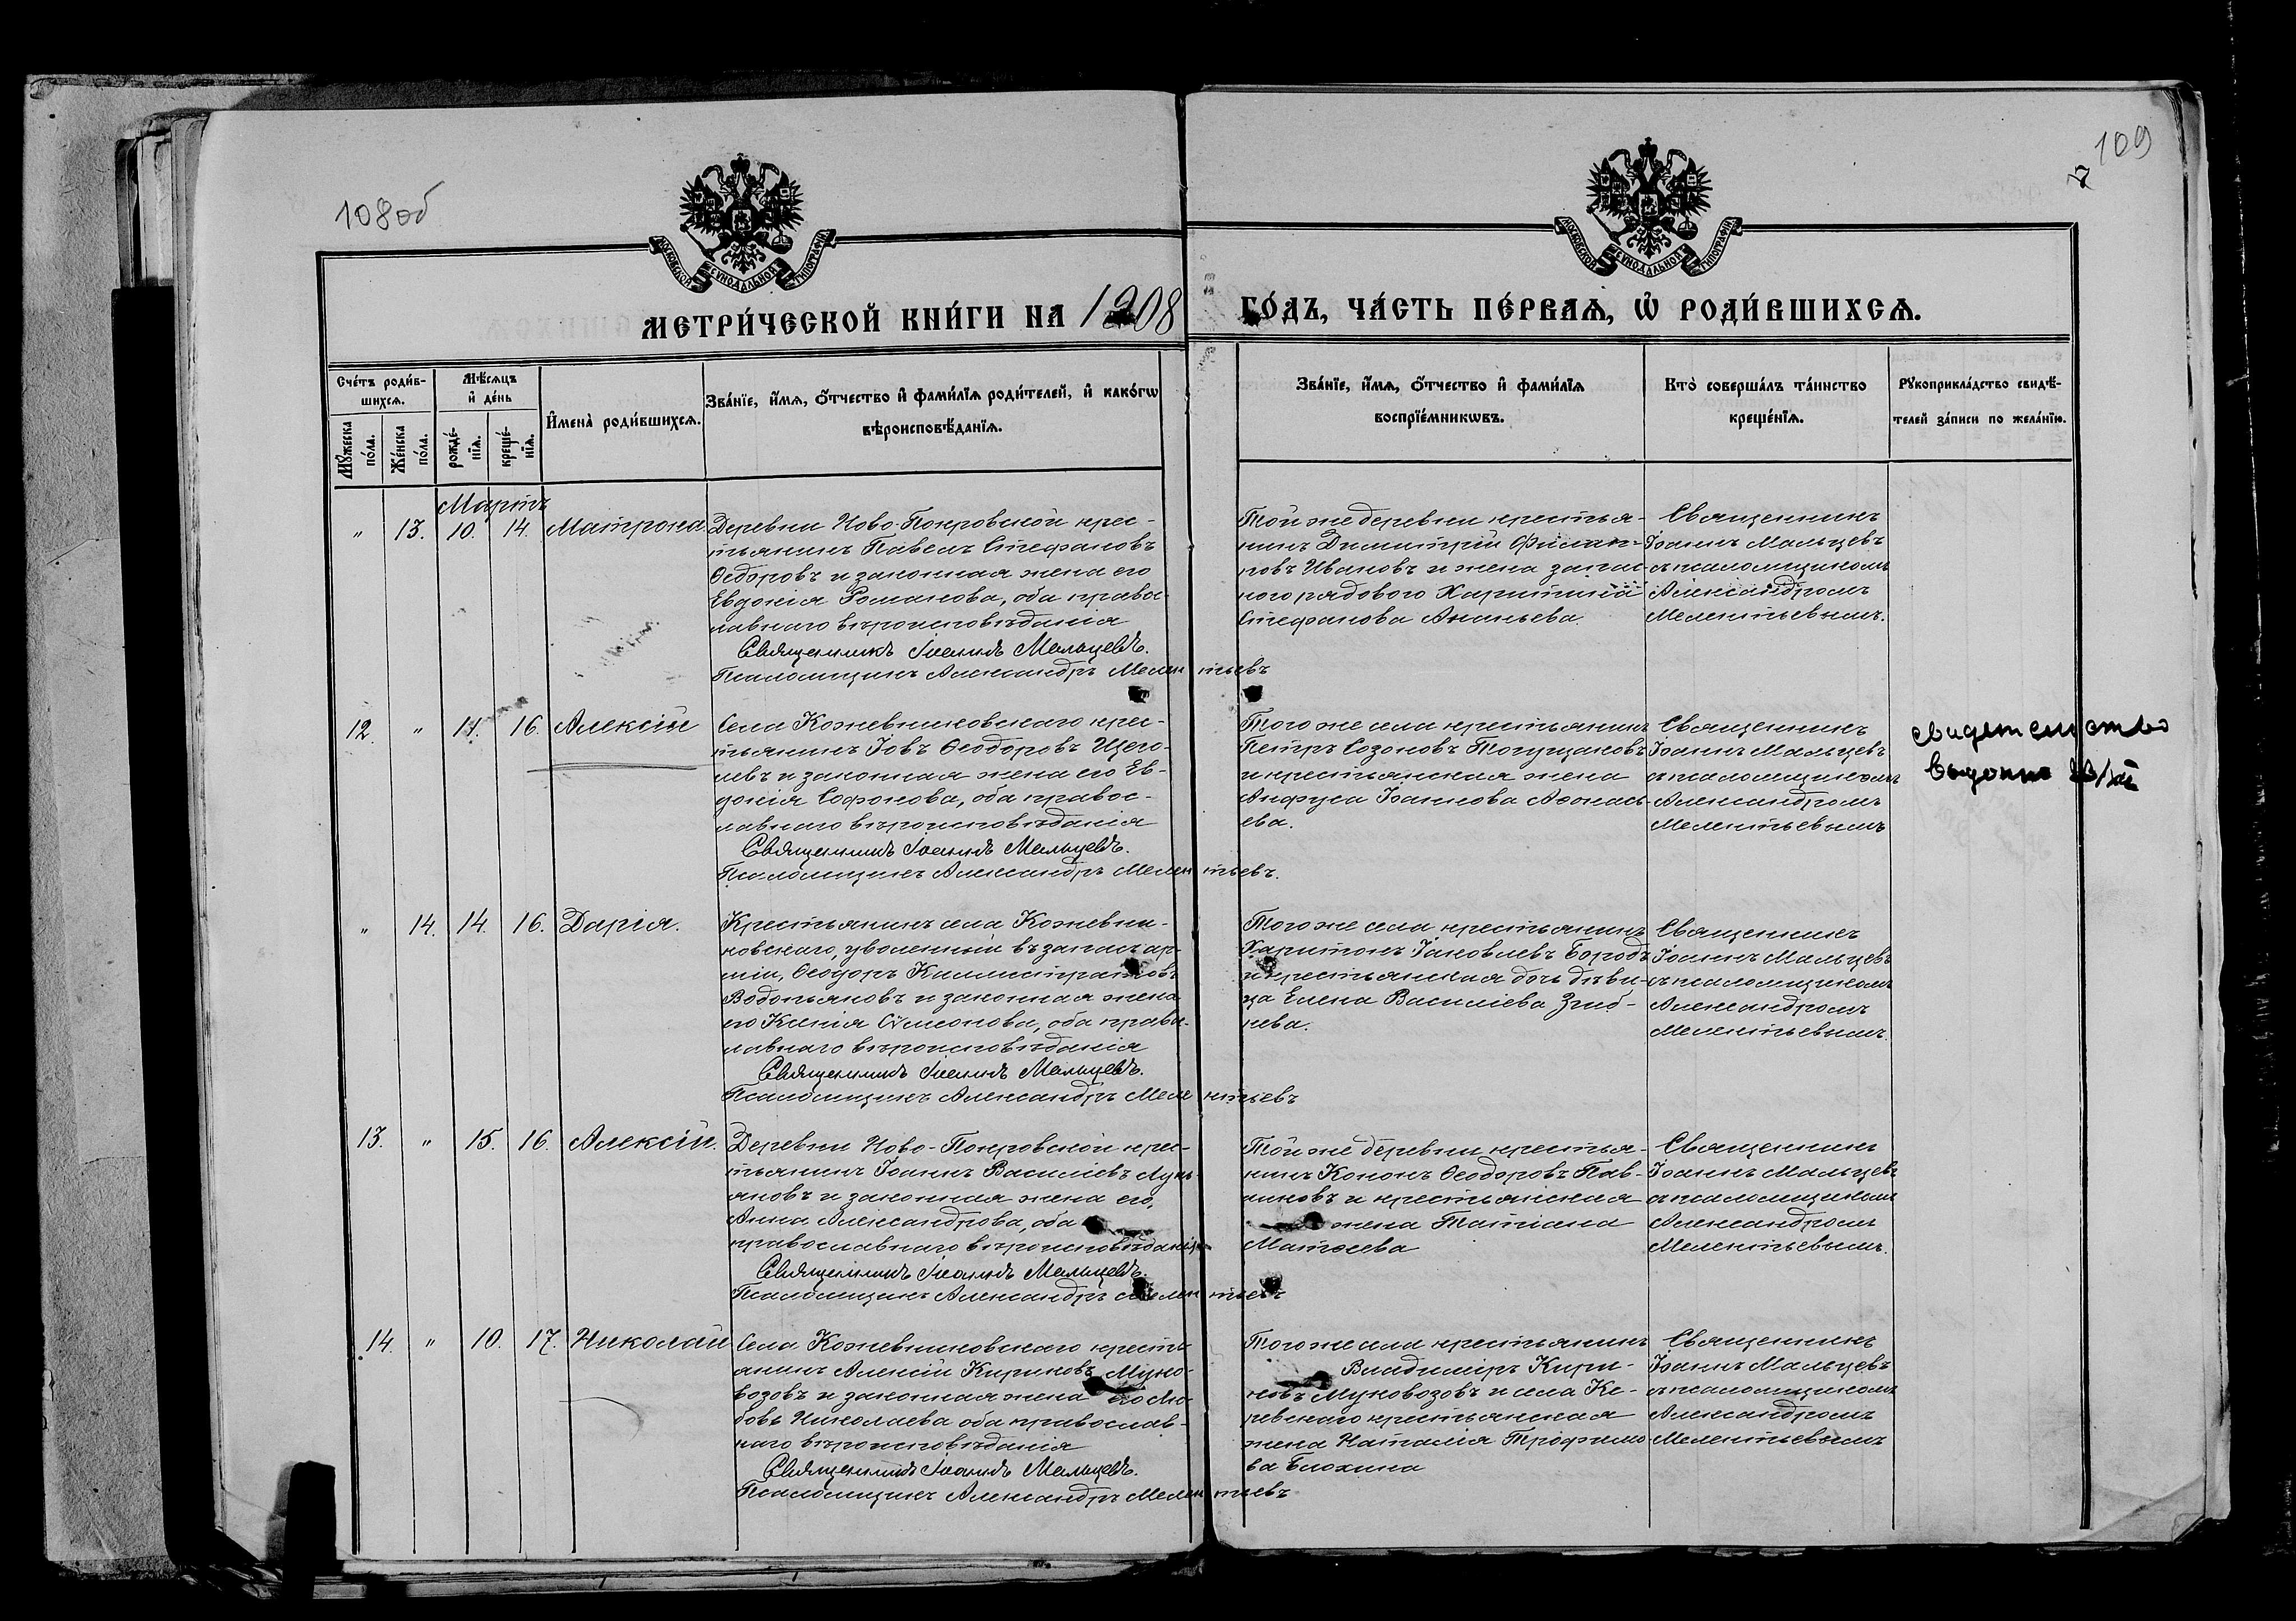 108об
109
7
МОСКОВСКОЙ СУНОДАЛЬНОЙ ТИПОГРАФІИ
МОСКОВСКОЙ СУНОДАЛЬНОЙ ТИПОГРАФІИ
МЕТРИ́ЧЕСКОЙ КНИ́ГИ НА 1908
ГО́ДЪ, ЧА́СТЬ ПЕ́РВАѦ, Ѡ҆ РОДИ́ВШИХСѦ.
Сче́тъ роди́в-
шихсѧ.
Мѣ́сѧцъ
и҆ де́нь
Мꙋ́жеска
по́ла.
Же́нска
по́ла.
рожде́-
нїѧ.
креще́-
нїѧ.
И҆мена̀ роди́вшихсѧ.
Зва́нїе, и҆́мѧ, ѻ҆́тчество и҆ фами́лїѧ роди́телей, и҆ како́гѡ
вѣроисповѣ́данїѧ.
Зва́нїе, и҆́мѧ, ѻ҆́тчество и҆ фами́лїѧ
воспрїе́мникѡвъ.
Кто̀ соверша́лъ та́инство
креще́нїѧ.
Рꙋкоприкла́дство свидѣ́-
телей за́писи по жела́нїю.
Мартъ
" 13. 10. 14. Матрона.
Деревни Ново-Покровской крес-
тьянинъ Павелъ Стефановъ
Ѳедоровъ и законная жена его
Евдокія Романова, оба право-
лавнаго вѣроисповѣданія
Священникъ Іоаннъ Мальцевъ.
Псаломщикъ Александръ Мелентьевъ
Той же деревни крестья-
нинъ Димитрій Филип-
повъ Ивановъ и жена запас-
ного рядового Харитинія
Стефанова Ананьева.
Священникъ
Іоаннъ Мальцевъ
съ псаломщикомъ
Александромъ
Мелентьевымъ.
12. " 11. 16. Алексій
Села Кожевниковскаго крес-
тьянинъ Іовъ Ѳеодоровъ Щего-
левъ и законная жена его Ев-
докія Софонова, оба правос-
лавнаго вѣроисповѣданія
Священникъ Іоаннъ Мальцевъ.
Псаломщикъ Александръ Мелентьевъ.
Того же села крестьянинъ
Петръ Созоновъ
и крестьянская жена
Анфуса Іоаннова Аѳонась-
ева.
Священникъ
Іоаннъ Мальцевъ
съ псаломщикомъ
Александромъ
Мелентьевымъ
свидетельство
выдонно
" 14. 14. 16. Дарія.
Крестьянинъ села Кожевни-
ковскаго, уволенный въ запасъ ар-
міи, Ѳеодоръ Каллистратовъ
Водопьяновъ и законная жена
его Ксенія Сѵмеонова, оба право-
лавнаго вѣроисповѣданія
Священникъ Іоаннъ Мальцевъ.
Псаломщикъ Александръ Мелентьевъ
Того же села крестьянинъ
Харитонъ Іаковлевъ
и крестьянская дочь дѣви-
ца Елена Василіева Зиб-
нева.
Священникъ
Іоаннъ Мальцевъ
съ псаломщикомъ
Александромъ
Мелентьевымъ.
13. " 15. 16. Алексій.
Деревни Ново-Покровской крес-
тьянинъ Іоаннъ Василіевъ Лукь-
яновъ и законная жена его,
Анна Александрова, оба
православнаго вѣроисповѣданія
Священникъ Іоаннъ Мальцевъ.
Псаломщикъ Александръ Мелентьевъ
Той же деревни крестья-
нинъ Кононъ Ѳеодоровъ Пав-
линовъ и крестьянская
жена Татіана
Матѳеева
Священникъ
Іоаннъ Мальцевъ
съ псаломщикомъ
Александромъ
Мелентьевымъ.
14. " 10. 17. Николай
Села Кожевниковскаго кресть-
янинъ Алексій Кириковъ Муко-
возовъ и законная жена его Лю-
бовь Николаева оба православ-
наго вѣроисповѣданія
Священникъ Іоаннъ Мальцевъ.
Псаломщикъ Александръ Мелентьевъ
Того же села крестьянинъ
Владиміръ Кири-
ковъ Муковозовъ и села Ке-
ревскаго крестьянская
жена Наталія Трофимо-
ва Блохина
Священникъ
Іоаннъ Мальцевъ
съ псаломщикомъ
Александромъ
Мелентьевымъ